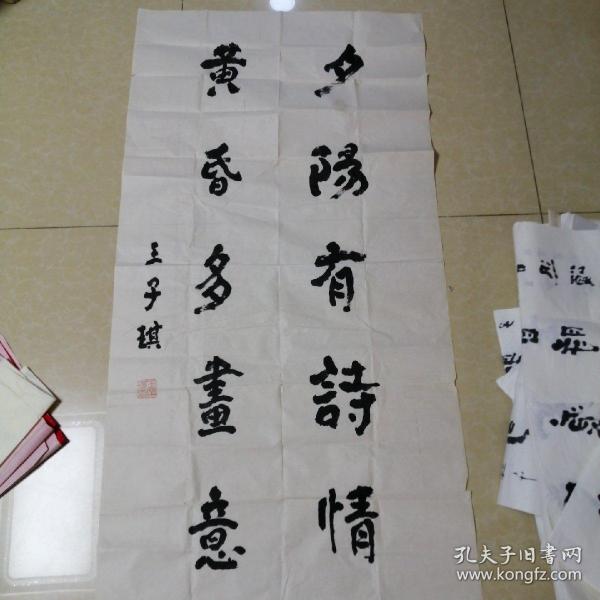 夕陽有詩情
黄昏多畫意
王子琪
孔夫子旧书网
www.kongfz.com